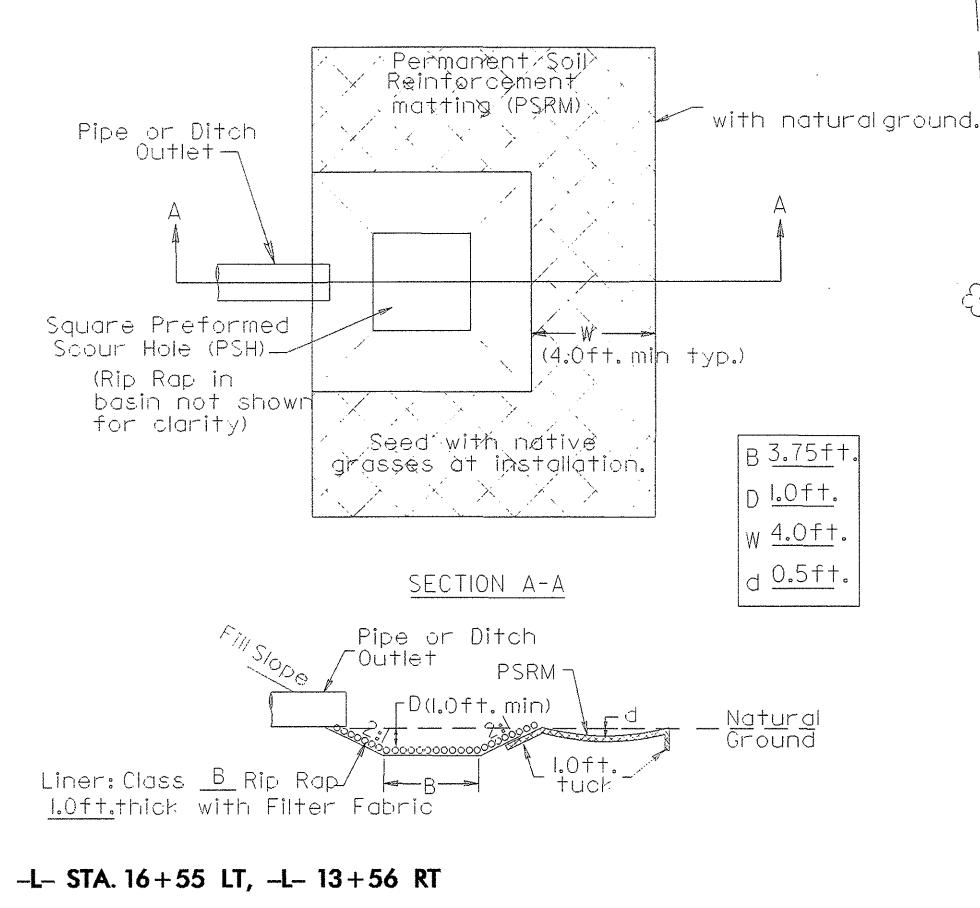 Permanent Soil
Reinforcement
matting (PSRM)
with natural ground.
Pipe or Ditch
Outlet
A
A
Square Preformed
Scour Hole (PSH)
(Rip Rap in
basin not shown
for clarity)
W
(4.0ft. min typ.)
Seed with native
grasses at installation.
B 3.75ft.
D 1.0ft.
W 4.0ft.
d 0.5ft.
SECTION A-A
Fill Slope
Pipe or Ditch
Outlet
PSRM
D(1.0ft. min)
d
Natural
Ground
2:1
2:1
Liner: Class B Rip Rap
1.0ft. thick with Filter Fabric
B
1.0ft.
tuck
-L- STA. 16+55 LT, -L- 13+56 RT